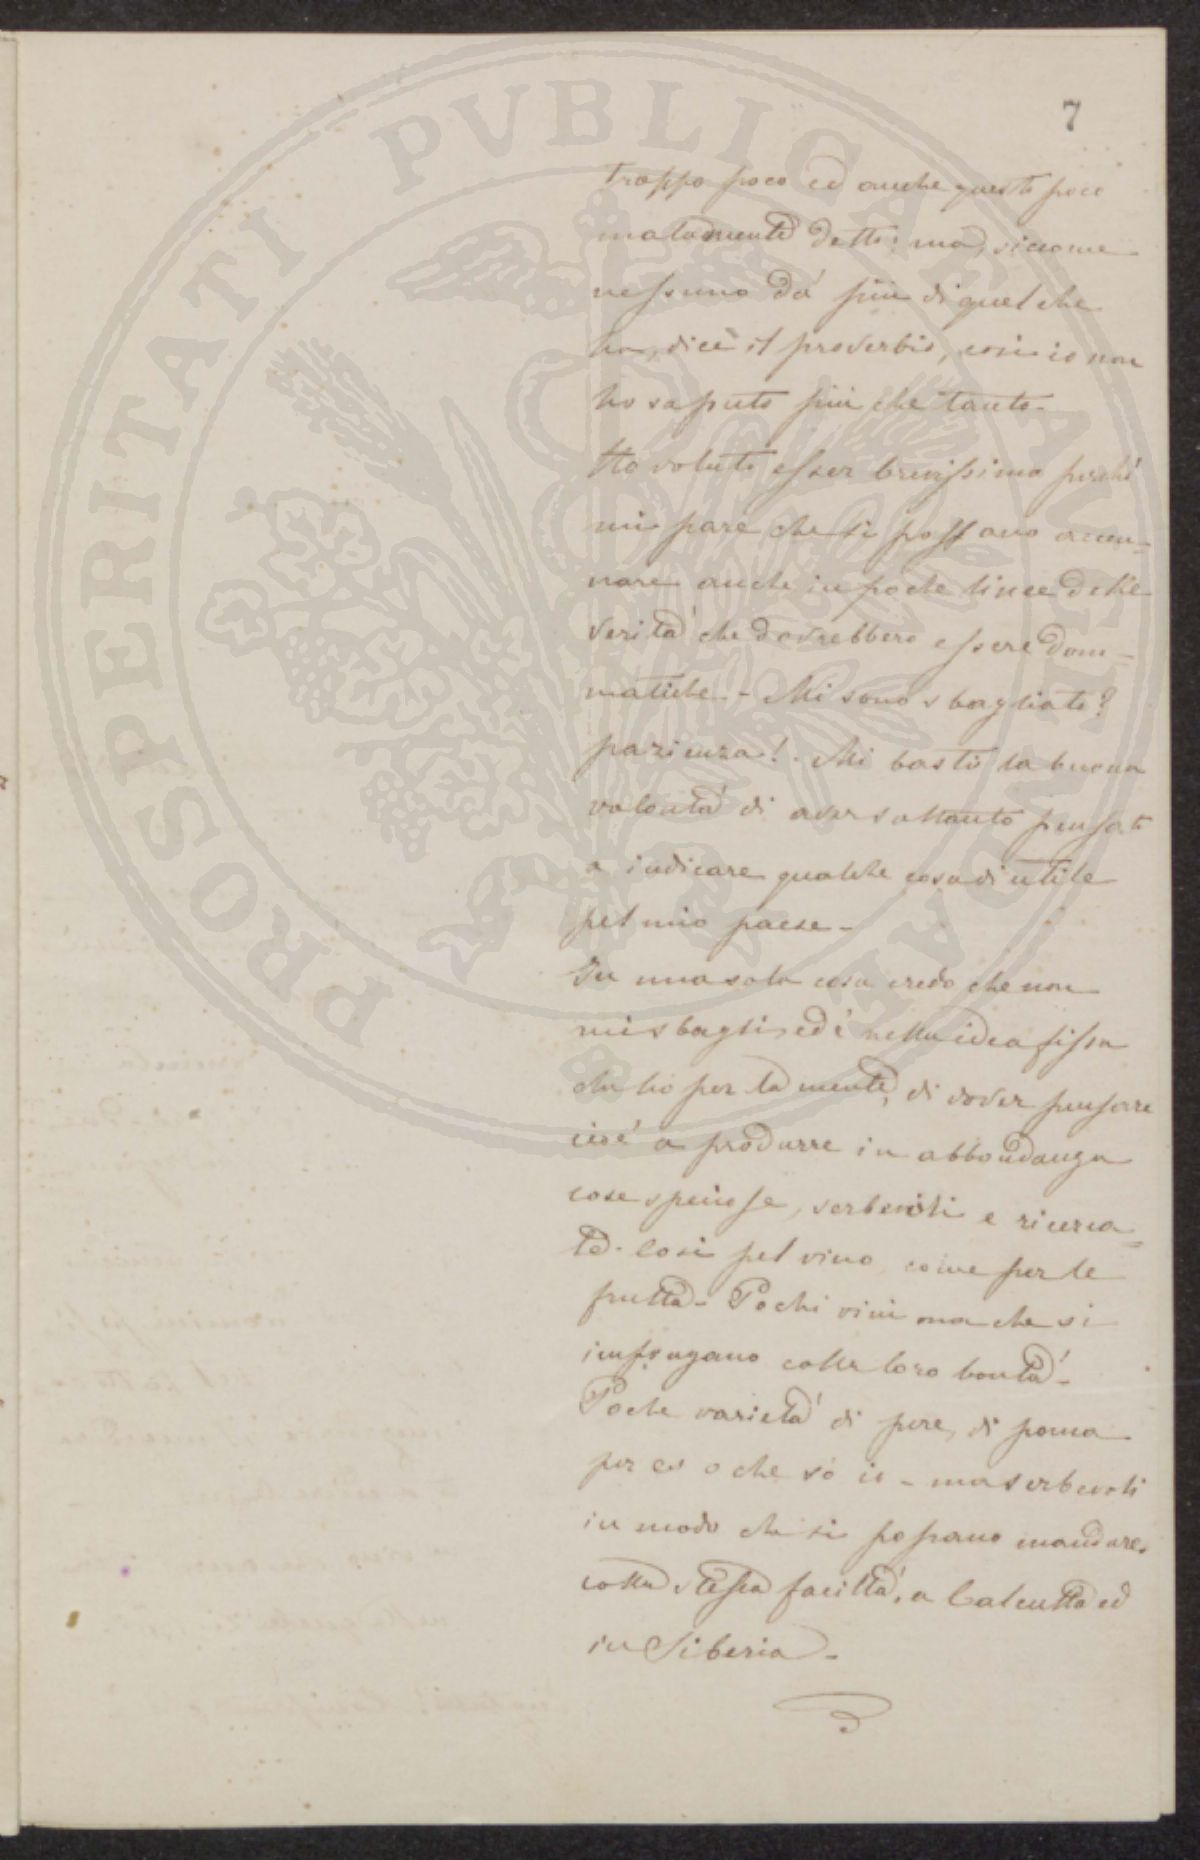 PROSPERITATI PUBLICAE AUGENDAE
7
troppo poco ed anche questo poco
malamente detto; ma, siccome
nessuno dà più di quel che
ha, dice il proverbio, così io non
ho saputo più che tanto.
Ho voluto esser brevissimo perchè
mi pare che si possano accen=
nare anche in poche linee delle
verità che dovrebbero essere dom=
matiche - Mi sono sbagliato?
pazienza! Mi basti la buona
volontà di aver soltanto pensato
a indicare qualche cosa di utile
pel mio paese -
In una sola cosa credo che non
mi sbagli, ed è nella idea fissa
che ho per la mente, di dover pensare
cioè a produrre in abbondanza
cose speciose, serbevoli e ricerca=
te. Così pel vino, come per le
frutta - Pochi vini ma che si
impongano colla loro bontà -
Poche varietà di pere, di poma
per es o che so io - ma serbevoli
in modo che si possano mandare,
colla stessa facilità, a Calcutta ed
in Siberia -